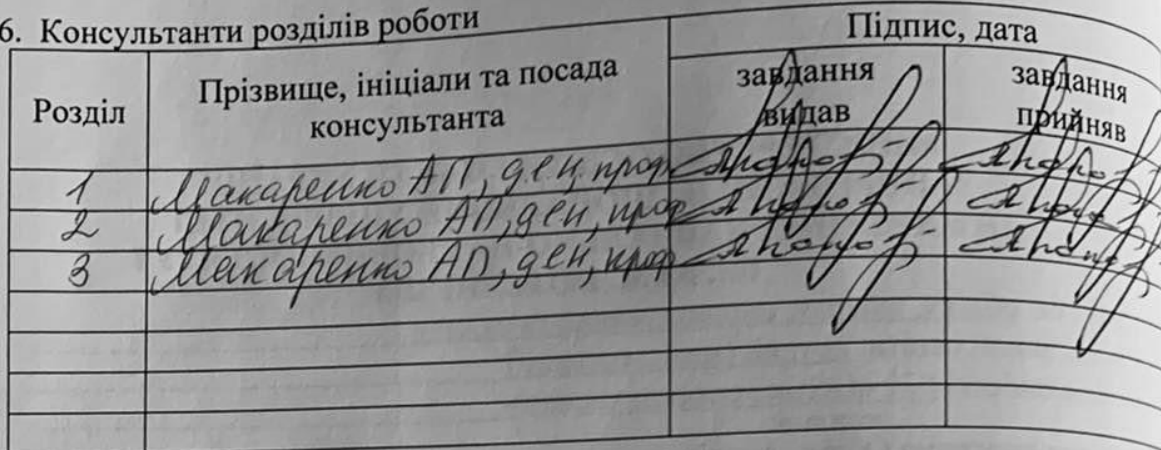 6. Консультанти розділів роботи
Розділ
Прізвище, ініціали та посада
консультанта
Підпис, дата
завдання
видав
завдання
прийняв
1 Макаренко АП, д.е.н, проф
2 Макаренко АП, д.е.н, проф
3 Макаренко АП, д.е.н, проф